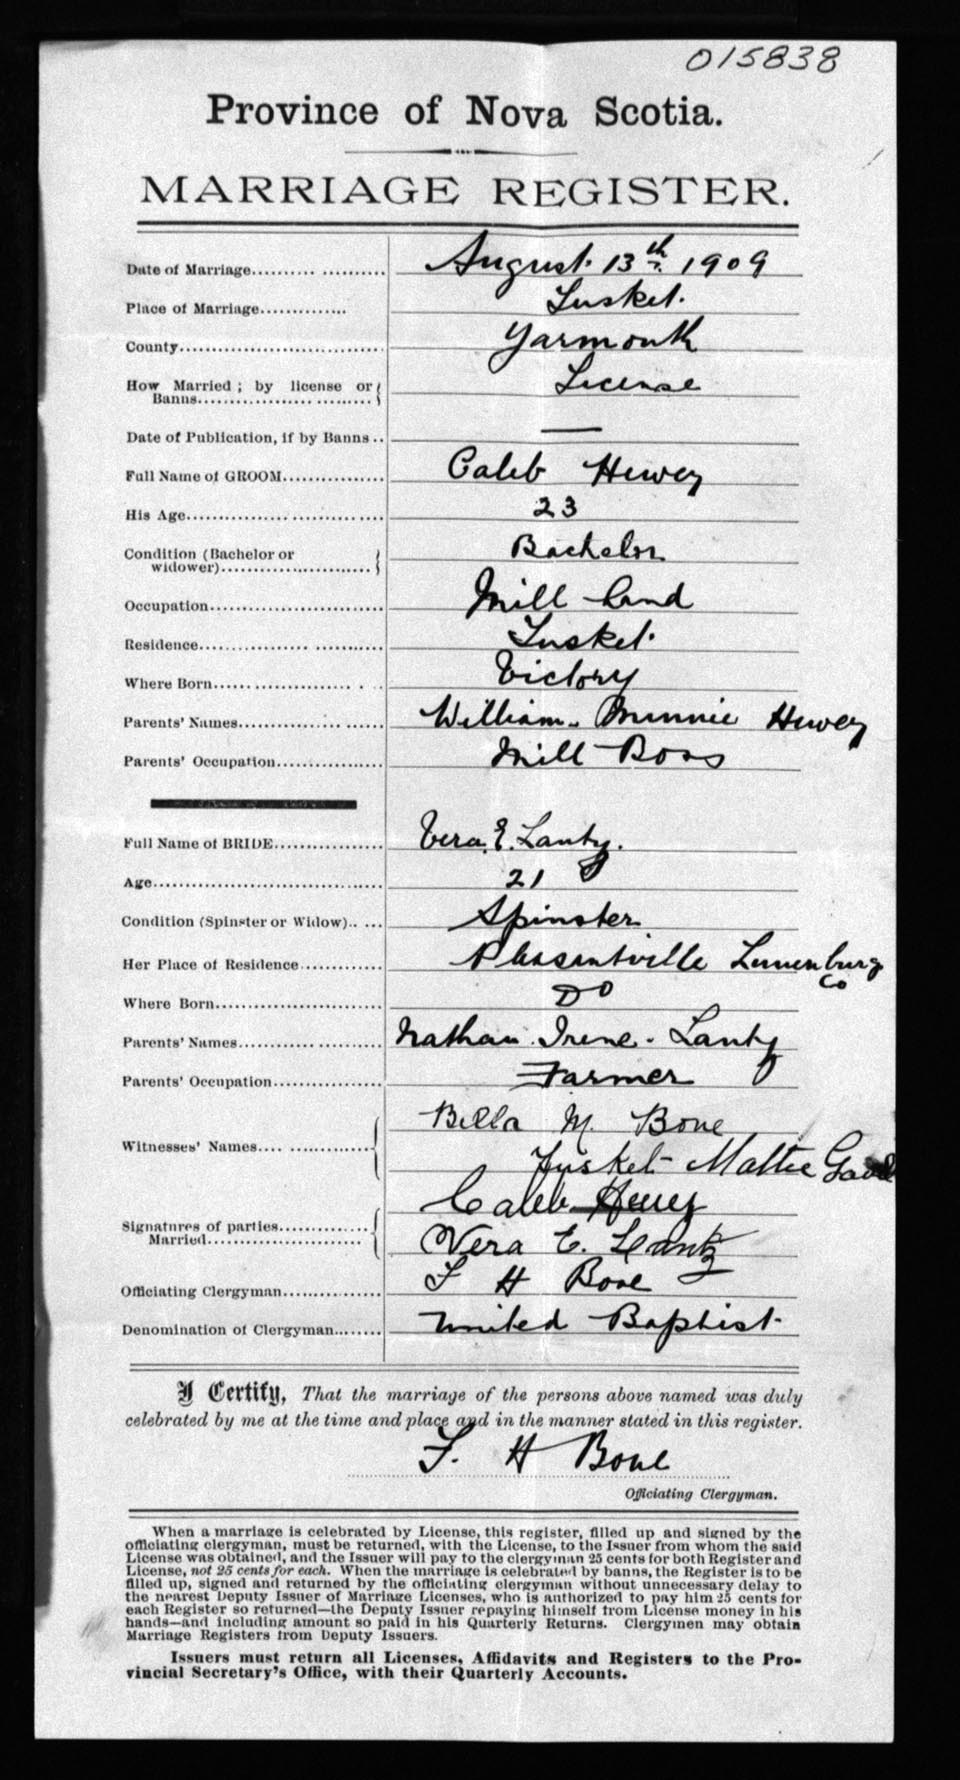 015838
Province of Nova Scotia.
MARRIAGE REGISTER.
Date of Marriage.......... August 13th 1909
Place of Marriage.............. Tusket.
County.......... Yarmouth
How Married; by license or Banns.......... License
Date of Publication, if by Banns.. —
Full Name of GROOM.......... Caleb Huey
His Age.......... 23
Condition (Bachelor or widower).......... Bachelor
Occupation.......... Mill hand
Residence.......... Tusket
Where Born.......... Victory
Parents' Names.......... William. Minnie
Parents' Occupation.......... Mill Boss
Full Name of BRIDE.......... Vera. E. Lantz.
Age.......... 21
Condition (Spinster or Widow).. ... Spinster
Her Place of Residence.......... Pleasantville Lunenburg Co
Where Born.......... Do
Parents' Names.......... Nathan. Irene. Lantz
Parents' Occupation.......... Farmer
Witnesses' Names.......... Bella M. Bone
Tusket Mattie
Signatures of parties.......... Caleb
Married.......... Vera E. Lantz
Officiating Clergyman.......... F H Bone
Denomination of Clergyman........ United Baptist
I Certify, That the marriage of the persons above named was duly
celebrated by me at the time and place and in the manner stated in this register.
F. H Bone
Officiating Clergyman.
When a marriage is celebrated by License, this register, filled up and signed by the
officiating clergyman, must be returned, with the License, to the Issuer from whom the said
License was obtained, and the Issuer will pay to the clergyman 25 cents for both Register and
License, not 25 cents for each. When the marriage is celebrated by banns, the Register is to be
filled up, signed and returned by the officiating clergyman without unnecessary delay to
the nearest Deputy Issuer of Marriage Licenses, who is authorized to pay him 25 cents for
each Register so returned—the Deputy Issuer repaying himself from License money in his
hands—and including amount so paid in his Quarterly Returns. Clergymen may obtain
Marriage Registers from Deputy Issuers.
Issuers must return all Licenses, Affidavits and Registers to the Pro-
vincial Secretary's Office, with their Quarterly Accounts.